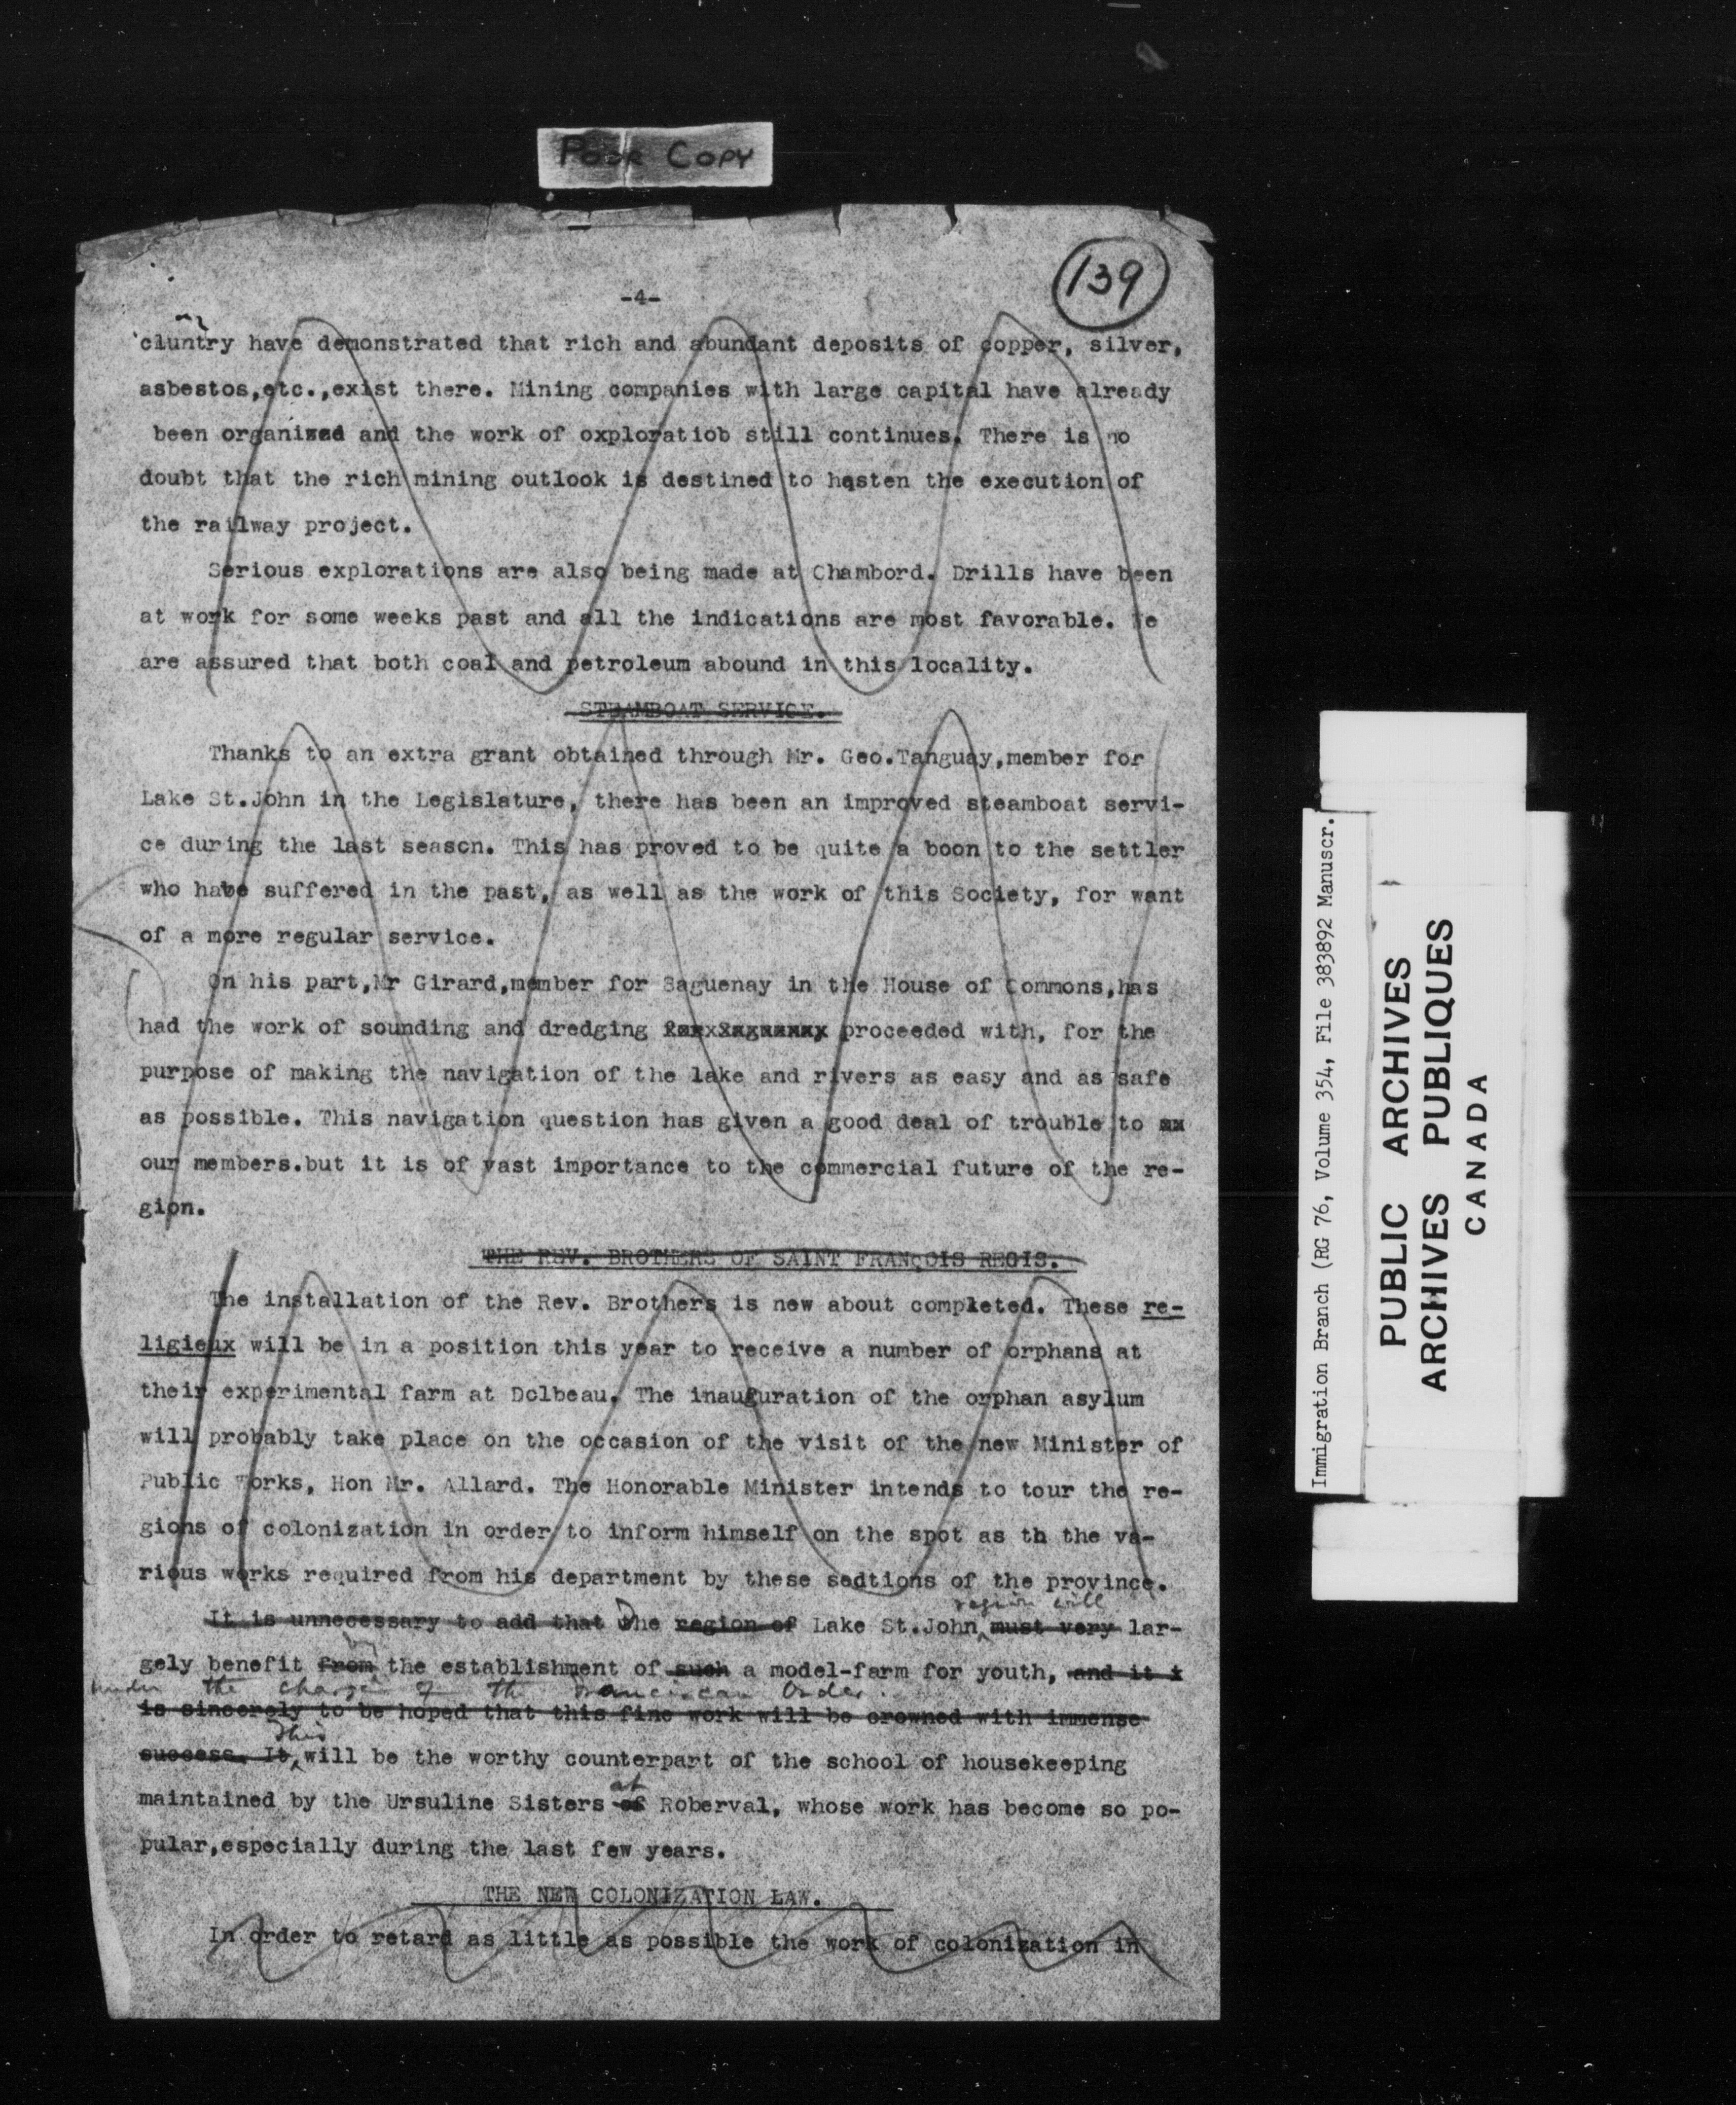 POOR COPY
139
-4-
cluntry have demonstrated that rich and abundant deposits of copper, silver,
asbestos,etc.,exist there. Mining companies with large capital have already
been organized and the work of oxploratiob still continues. There is no
doubt that the rich mining outlook is destined to hasten the execution of
the railway project.
Serious explorations are also being made at Chambord. Drills have been
at work for some weeks past and all the indications are most favorable. We
are assured that both coal and petroleum abound in this locality.
STEAMBOAT SERVICE.
Thanks to an extra grant obtained through Mr. Geo.Tanguay,member for
Lake St.John in the Legislature, there has been an improved steamboat servi-
ce during the last season. This has proved to be quite a boon to the settler
who have suffered in the past, as well as the work of this Society, for want
of a more regular service.
On his part,Mr Girard,member for Saguenay in the House of Commons,has
had the work of sounding and dredging proceeded with, for the
purpose of making the navigation of the lake and rivers as easy and as safe
as possible. This navigation question has given a good deal of trouble to
our members.but it is of vast importance to the commercial future of the re-
gion.
THE REV. BROTHERS OF SAINT FRANçOIS REGIS.
The installation of the Rev. Brothers is new about completed. These re-
ligieux will be in a position this year to receive a number of orphans at
their experimental farm at Dolbeau. The inauguration of the orphan asylum
will probably take place on the occasion of the visit of the new Minister of
Public Works, Hon Mr. Allard. The Honorable Minister intends to tour the re-
gions of colonization in order to inform himself on the spot as th the va-
rious works required from his department by these sedtions of the province.
region will
It is unnecessary to add that The region of Lake St.John must very lar-
by
gely benefit from the establishment of such a model-farm for youth, and it i
under the charge of the Franciscan Order.
is sincerely to be hoped that this fine work will be crowned with immense
This
success. It will be the worthy counterpart of the school of housekeeping
at
maintained by the Ursuline Sisters of Roberval, whose work has become so po-
pular,especially during the last few years.
THE NEW COLONIZATION LAW.
In order to retard as little as possible the work of colonization in
Immigration Branch (RG 76, Volume 354, File 383892 Manuscr.
PUBLIC ARCHIVES
ARCHIVES PUBLIQUES
CANADA